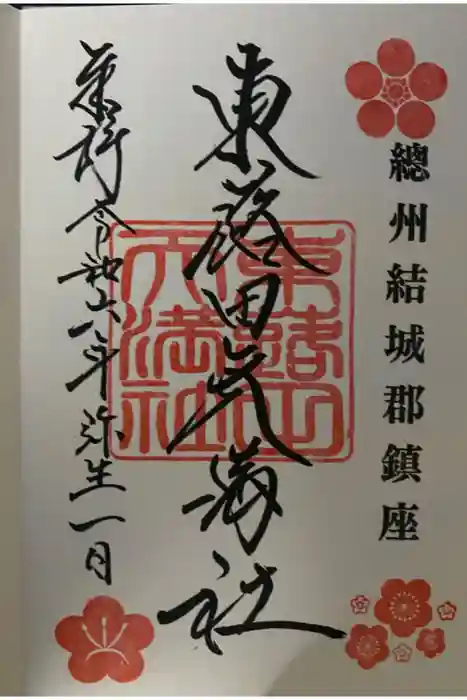 總州結城郡鎮座
東蕗田天満社
東蕗田
天満社
奉拝 令和六年弥生一日